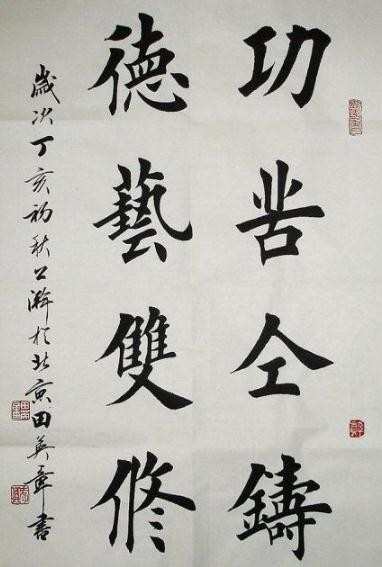 功苦仝鑄
德藝雙修
歲次丁亥初秋上澣於北京田英章書